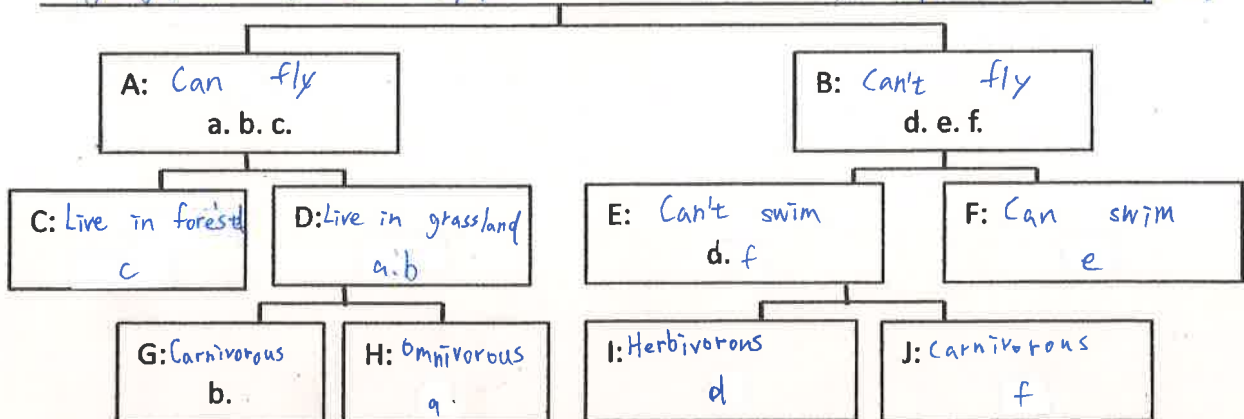 A: Can fly
a. b. c.
B: Can't fly
d. e. f.
C: Live in forest
c
D: Live in grassland
a. b
E: Can't swim
d. f
F: Can swim
e
G: Carnivorous
b.
H: Omnivorous
a.
I: Herbivorous
d
J: Carnivorous
f